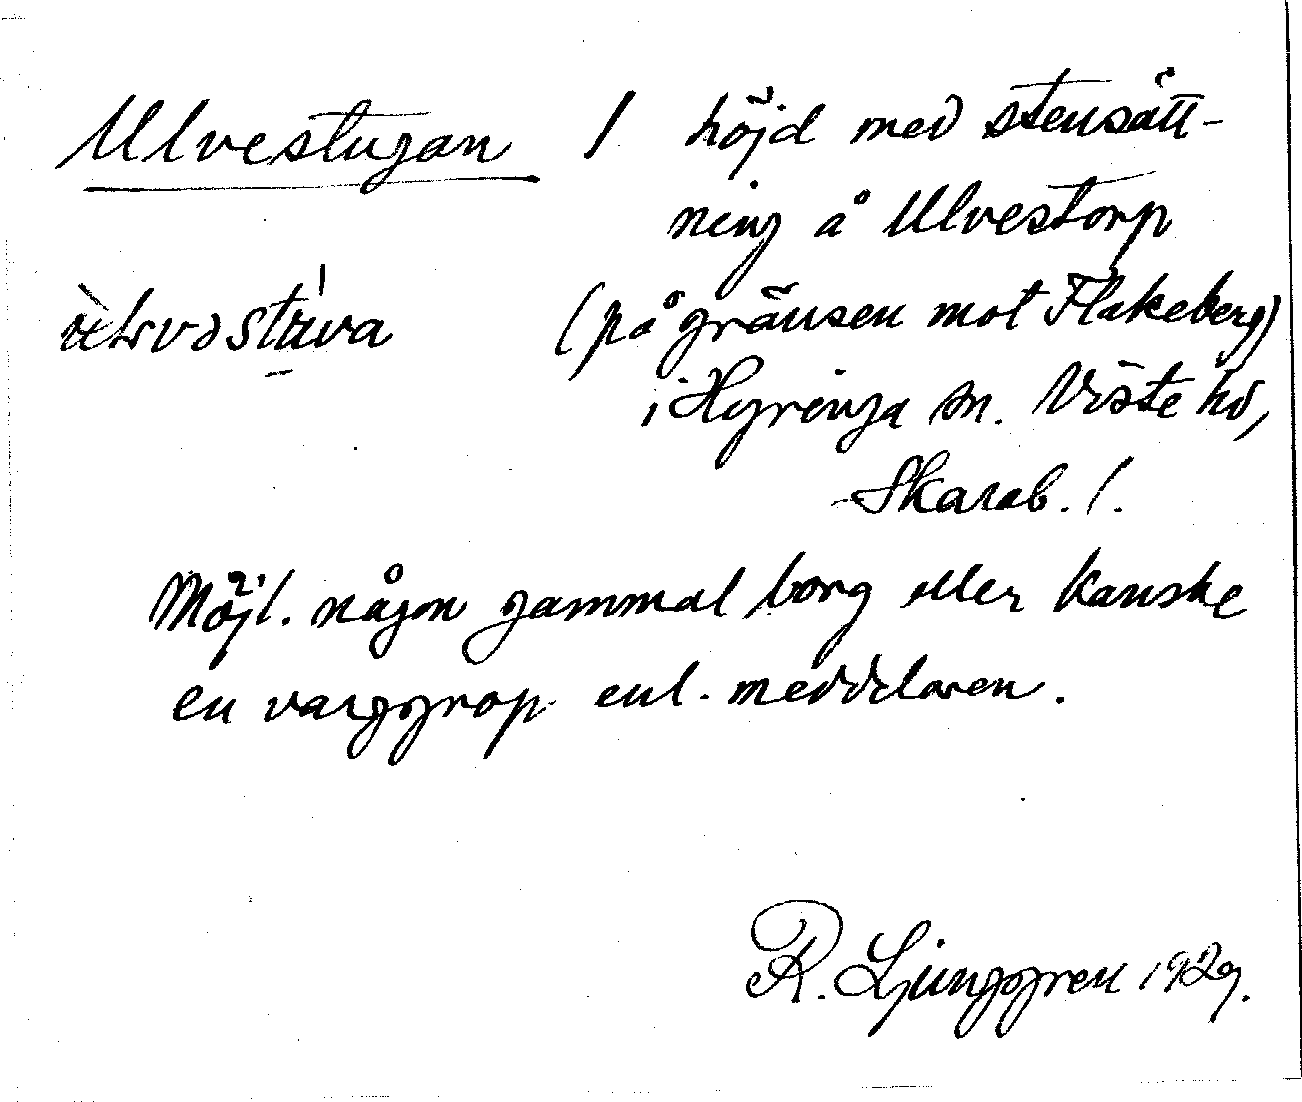 Ulvestugan / höjd med stensätt-
ning å Ulvestorp
(på gränsen mot Flakeberg)
i Hyringa sn. Viste hd,
Skarab. l.
Möjl. någon gammal borg eller kanske
en varggrop enl. meddelaren.
R. Ljunggren 1929.